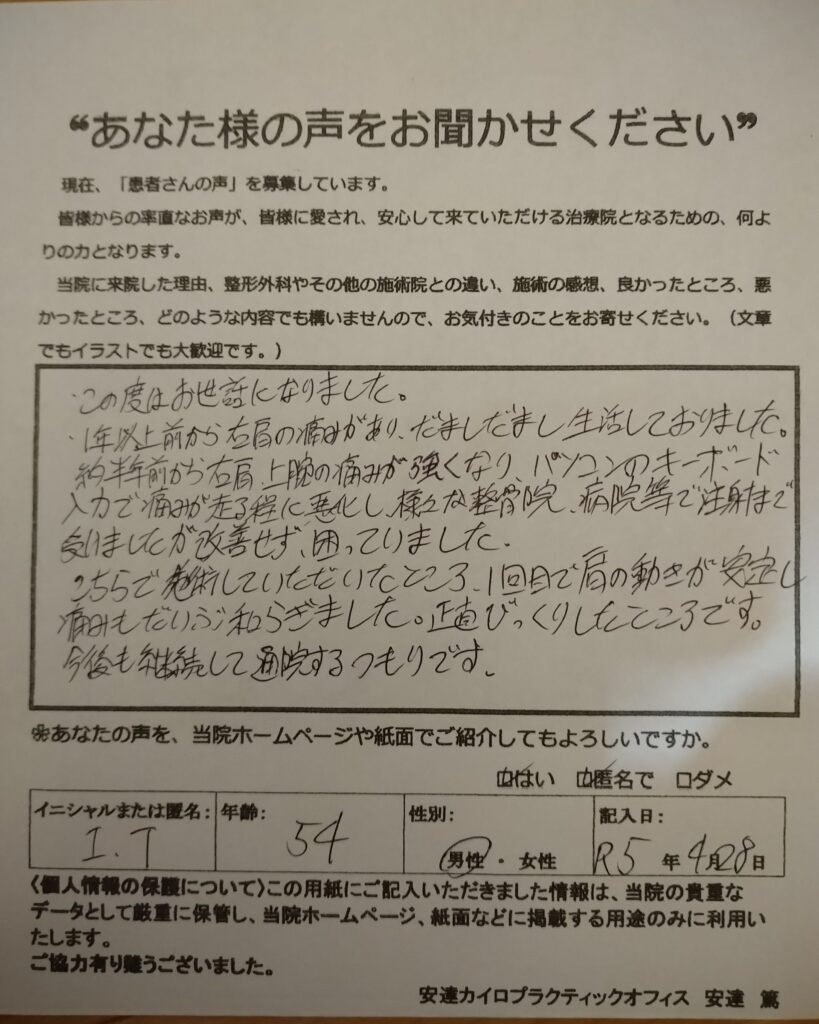 “あなた様の声をお聞かせください”
現在、「患者さんの声」を募集しています。
皆様からの率直なお声が、皆様に愛され、安心して来ていただける治療院となるための、何よ
りの力となります。
当院に来院した理由、整形外科やその他の施術院との違い、施術の感想、良かったところ、悪
かったところ、どのような内容でも構いませんので、お気付きのことをお寄せください。（文章
でもイラストでも大歓迎です。）
・この度はお世話になりました。
・1年以上前から右肩の痛みがあり、だましだまし生活しておりました。
約半年前から右肩、上腕の痛みが強くなり、パソコンのキーボード
入力で痛みが走る程に悪化し、様々な整骨院、病院等で注射まで
受けましたが改善せず、困っていました。
こちらで施術していただいたところ、1回目で肩の動きが安定し
痛みもだいぶ和らぎました。正直びっくりしたところです。
今後も継続して通院するつもりです。
❀あなたの声を、当院ホームページや紙面でご紹介してもよろしいですか。
☑はい ☑匿名で □ダメ
イニシャルまたは匿名： 年齢： 性別： 記入日：
I.T 54 男性・女性 R5年4月28日
〈個人情報の保護について〉この用紙にご記入いただきました情報は、当院の貴重な
データとして厳重に保管し、当院ホームページ、紙面などに掲載する用途のみに利用い
たします。
ご協力有り難うございました。
安達カイロプラクティックオフィス 安達 篤